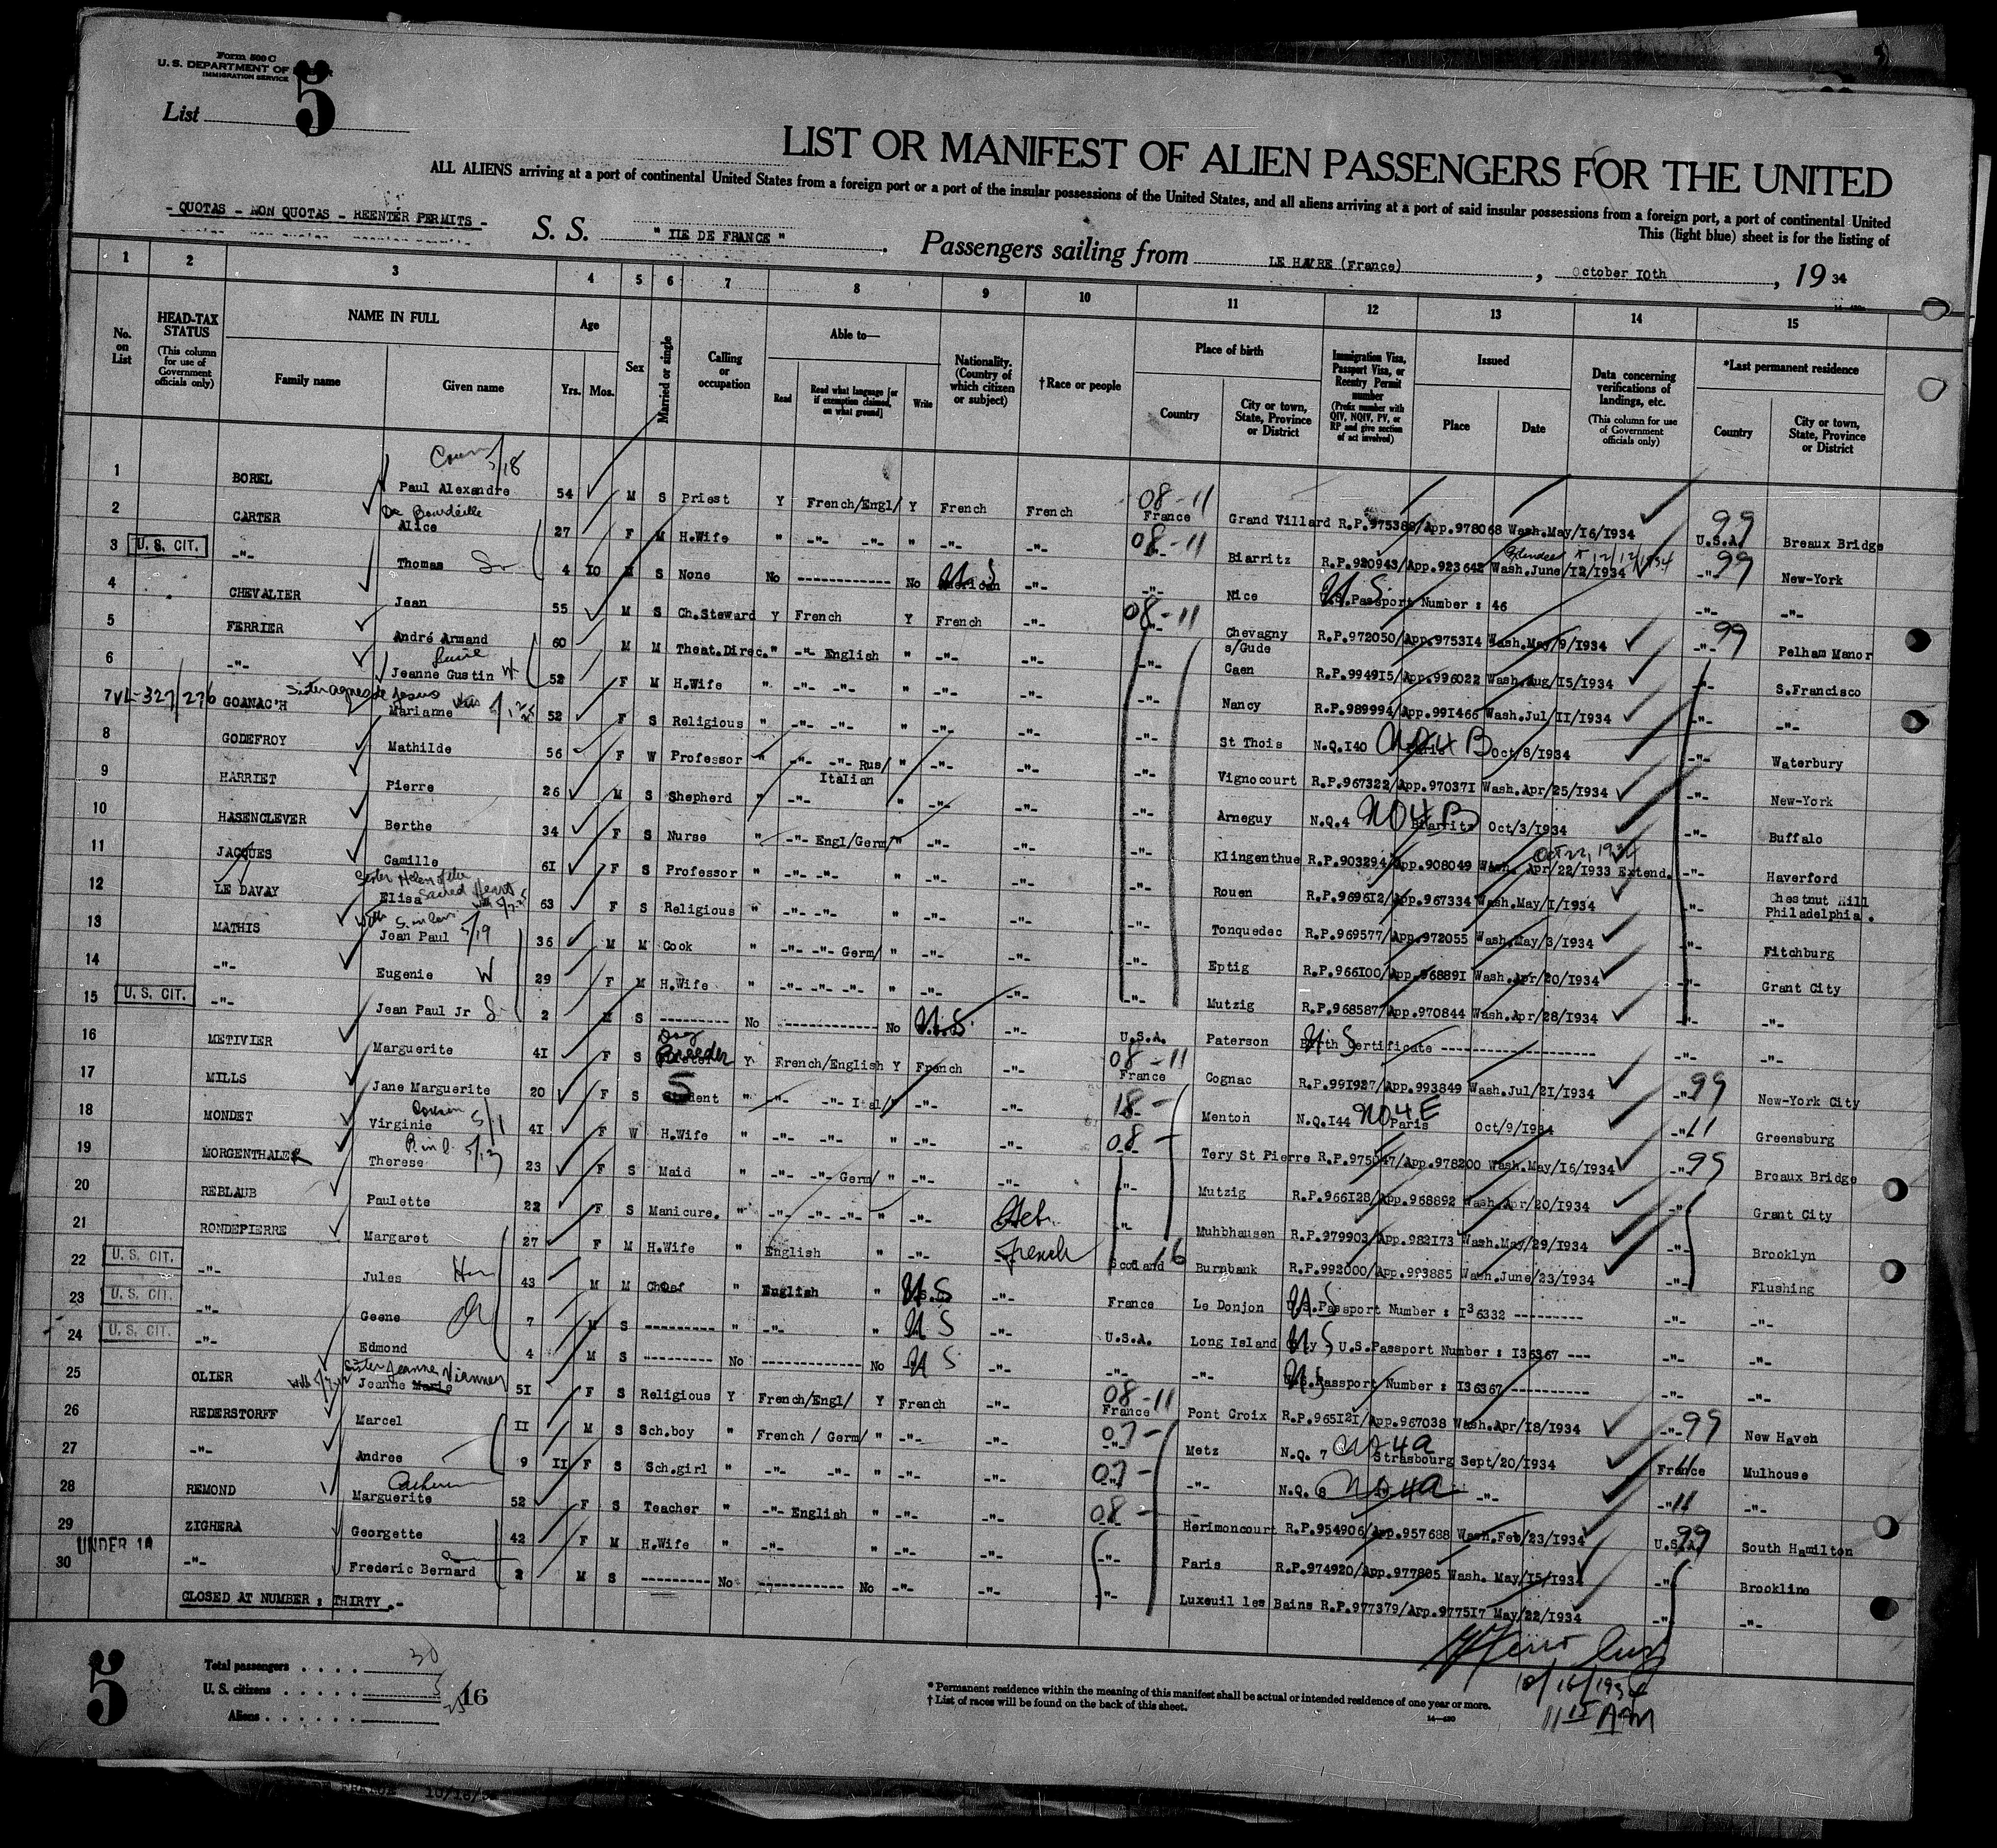 Form 500 C
U. S. DEPARTMENT OF
IMMIGRATION SERVICE
List 5
LIST OR MANIFEST OF ALIEN PASSENGERS FOR THE UNITED
ALL ALIENS arriving at a port of continental United States from a foreign port or a port of the insular possessions of the United States, and all aliens arriving at a port of said insular possessions from a foreign port, a port of continental United
This (light blue) sheet is for the listing of
- QUOTAS - NON QUOTAS - REENTER PERMITS -
S. S. " ILE DE FRANCE " . Passengers sailing from LE HAVRE (France) , October 10th , 19 34
1 2 3 4 5 6 7 8 9 10 11 12 13 14 15
No. on List
HEAD-TAX STATUS (This column for use of Government officials only)
NAME IN FULL Family name Given name
Age Yrs. Mos.
Sex
Married or single
Calling or occupation
Able to— Read Read what language [or if exemption claimed, on what ground] Write
Nationality. (Country of which citizen or subject)
†Race or people
Place of birth Country City or town, State, Province or District
Immigration Visa, Passport Visa, or Reentry Permit number (Prefix number with QIV, NQIV, PV, or RP and give section of act involved)
Issued Place Date
Data concerning verifications of landings, etc. (This column for use of Government officials only)
*Last permanent residence Country City or town, State, Province or District
1 BOREL Paul Alexandre 5/18 54 M S Priest Y French/Engl/ Y French French 08-11 France Grand Villard R.P.975380/App.978068 Wash.May/16/1934 99 U.S.A. Breaux Bridge
2 CARTER Alice 27 F M H.Wife " -"- -"- " -"- -"- 08-11 -"- Biarritz R.P.920943/App.923642 Wash.June/12/1934 12/12/1934 99 -"- New-York
3 U. S. CIT. -"- Thomas 4 10 M S None No ------------ No U S -"- -"- Nice U.S.Passport Number : 46 -"- -"-
4 CHEVALIER Jean 55 M S Ch.Steward Y French Y French -"- 08-11 Chevagny s/Gude R.P.972050/App.975314 Wash.May/9/1934 99 -"- Pelham Manor
5 FERRIER André Armand 60 M M Theat.Direc. " -"- English " -"- -"- -"- Caen R.P.994915/App.996022 Wash.Aug/15/1934 -"- S.Francisco
6 -"- Jeanne Gustin W 52 F M H.Wife " -"- -"- " -"- -"- -"- Nancy R.P.989994/App.991466 Wash.Jul/11/1934 -"- -"-
7 VL-327/276 GOANAC'H Sister Agnes de Jesus Marianne 52 F S Religious " -"- -"- " -"- -"- -"- St Thois N.Q.140 NO4B Oct/8/1934 -"- Waterbury
8 GODEFROY Mathilde 56 F W Professor " -"- -"- Rus/ Italian " -"- -"- -"- Vignocourt R.P.967322/App.970371 Wash.Apr/25/1934 -"- New-York
9 HARRIET Pierre 26 M S Shepherd " -"- " -"- -"- -"- Arneguy N.Q.4 NO4B Biarritz Oct/3/1934 -"- Buffalo
10 HASENCLEVER Berthe 34 F S Nurse " -"- Engl/Germ/ " -"- -"- -"- Klingenthue R.P.903294/App.908049 Wash. Apr/22/1933 Extend. Oct 22, 1934 -"- Haverford
11 JACQUES Camille 61 F S Professor " -"- -"- " -"- -"- -"- Rouen R.P.969612/App.967334 Wash.May/1/1934 -"- Chestnut Hill Philadelphia.
12 LE DAVAY Sister Helen of the Sacred Heart Elisa 63 F S Religious " -"- -"- " -"- -"- -"- Tonquedec R.P.969577/App.972055 Wash.May/3/1934 -"- Fitchburg
13 MATHIS Jean Paul 5/19 36 M M Cook " -"- -"- Germ/ " -"- -"- -"- Eptig R.P.966100/App.968891 Wash.Apr/20/1934 -"- Grant City
14 -"- Eugenie W 29 F M H.Wife " -"- -"- -"- " -"- -"- -"- Mutzig R.P.968587/App.970844 Wash.Apr/28/1934 -"- -"-
15 U. S. CIT. -"- Jean Paul Jr 2 M S --------- No ------------ No U.S. -"- U.S.A. Paterson U S Birth Certificate ---------- -"- -"-
16 METIVIER Marguerite 41 F S Dog Breeder Y French/English Y French -"- 08-11 France Cognac R.P.991927/App.993849 Wash.Jul/21/1934 99 -"- New-York City
17 MILLS Jane Marguerite 20 F S Student " -"- -"- Ital/ " -"- -"- 18- -"- Menton N.Q.144 NO4E Paris Oct/9/1934 -"- 11 Greensburg
18 MONDET Cousin 5/1 Virginie 41 F W H.Wife " -"- -"- " -"- -"- 08- -"- Tery St Pierre R.P.975047/App.978200 Wash.May/16/1934 -"- 99 Breaux Bridge
19 MORGENTHALER Therese 23 F S Maid " -"- -"- Germ/ " -"- -"- -"- Mutzig R.P.966128/App.968892 Wash.Apr/20/1934 -"- Grant City
20 REBLAUB Paulette 22 F S Manicure. " -"- -"- -"- " -"- Heb. -"- Muhbhausen R.P.979903/App.982173 Wash.May/29/1934 -"- Brooklyn
21 RONDEPIERRE Margaret 27 F M H.Wife " English " -"- French Scotland 16 Burnbank R.P.992000/App.993885 Wash.June/23/1934 -"- Flushing
22 U. S. CIT. -"- Jules 43 M M Chief " English " U S -"- France Le Donjon U.S.Passport Number : 136332 -------- -"- -"-
23 U. S. CIT. -"- Geene 7 M S --------- " -"- " U S -"- U.S.A. Long Island City U S U.S.Passport Number : 136367 --- -"- -"-
24 U. S. CIT. -"- Edmond 4 M S --------- No ------------ No U S -"- -"- -"- U.S.Passport Number : 136367 ---------- -"- -"-
25 OLIER Sister Jeanne Vianney Jeanne Marie 51 F S Religious Y French/Engl/ Y French -"- 08-11 France Pont Croix R.P.965121/App.967038 Wash.Apr/18/1934 -"- 99 New Haven
26 REDERSTORFF Marcel 11 M S Sch.boy " French / Germ/ " -"- -"- 07- -"- Metz N.Q. 7 NO4a Strasbourg Sept/20/1934 France 11 Mulhouse
27 -"- Andree 9 11 F S Sch.girl " -"- -"- " -"- -"- 07- -"- -"- N.Q. 8 NO4a -"- -"- 11 -"-
28 REMOND Marguerite 52 F S Teacher " -"- English " -"- -"- 08- -"- Herimoncourt R.P.954906/App.957688 Wash.Feb/23/1934 U.S.A. 99 South Hamilton
29 ZIGHERA Georgette 42 F M H.Wife " -"- -"- " -"- -"- -"- Paris R.P.974920/App.977805 Wash. May/15/1934 -"- Brookline
UNDER 14
30 -"- Frederic Bernard 2 M S --------- No ----------- No -"- -"- -"- Luxeuil les Bains R.P.977379/App.977517 May/22/1934 -"- -"-
CLOSED AT NUMBER : THIRTY .-
5
Total passengers . . . . 30
U. S. citizens . . . . . 5
Aliens . . . . . . 25
16
* Permanent residence within the meaning of this manifest shall be actual or intended residence of one year or more.
† List of races will be found on the back of this sheet.
14—430
10/16/1934
11 15 AM